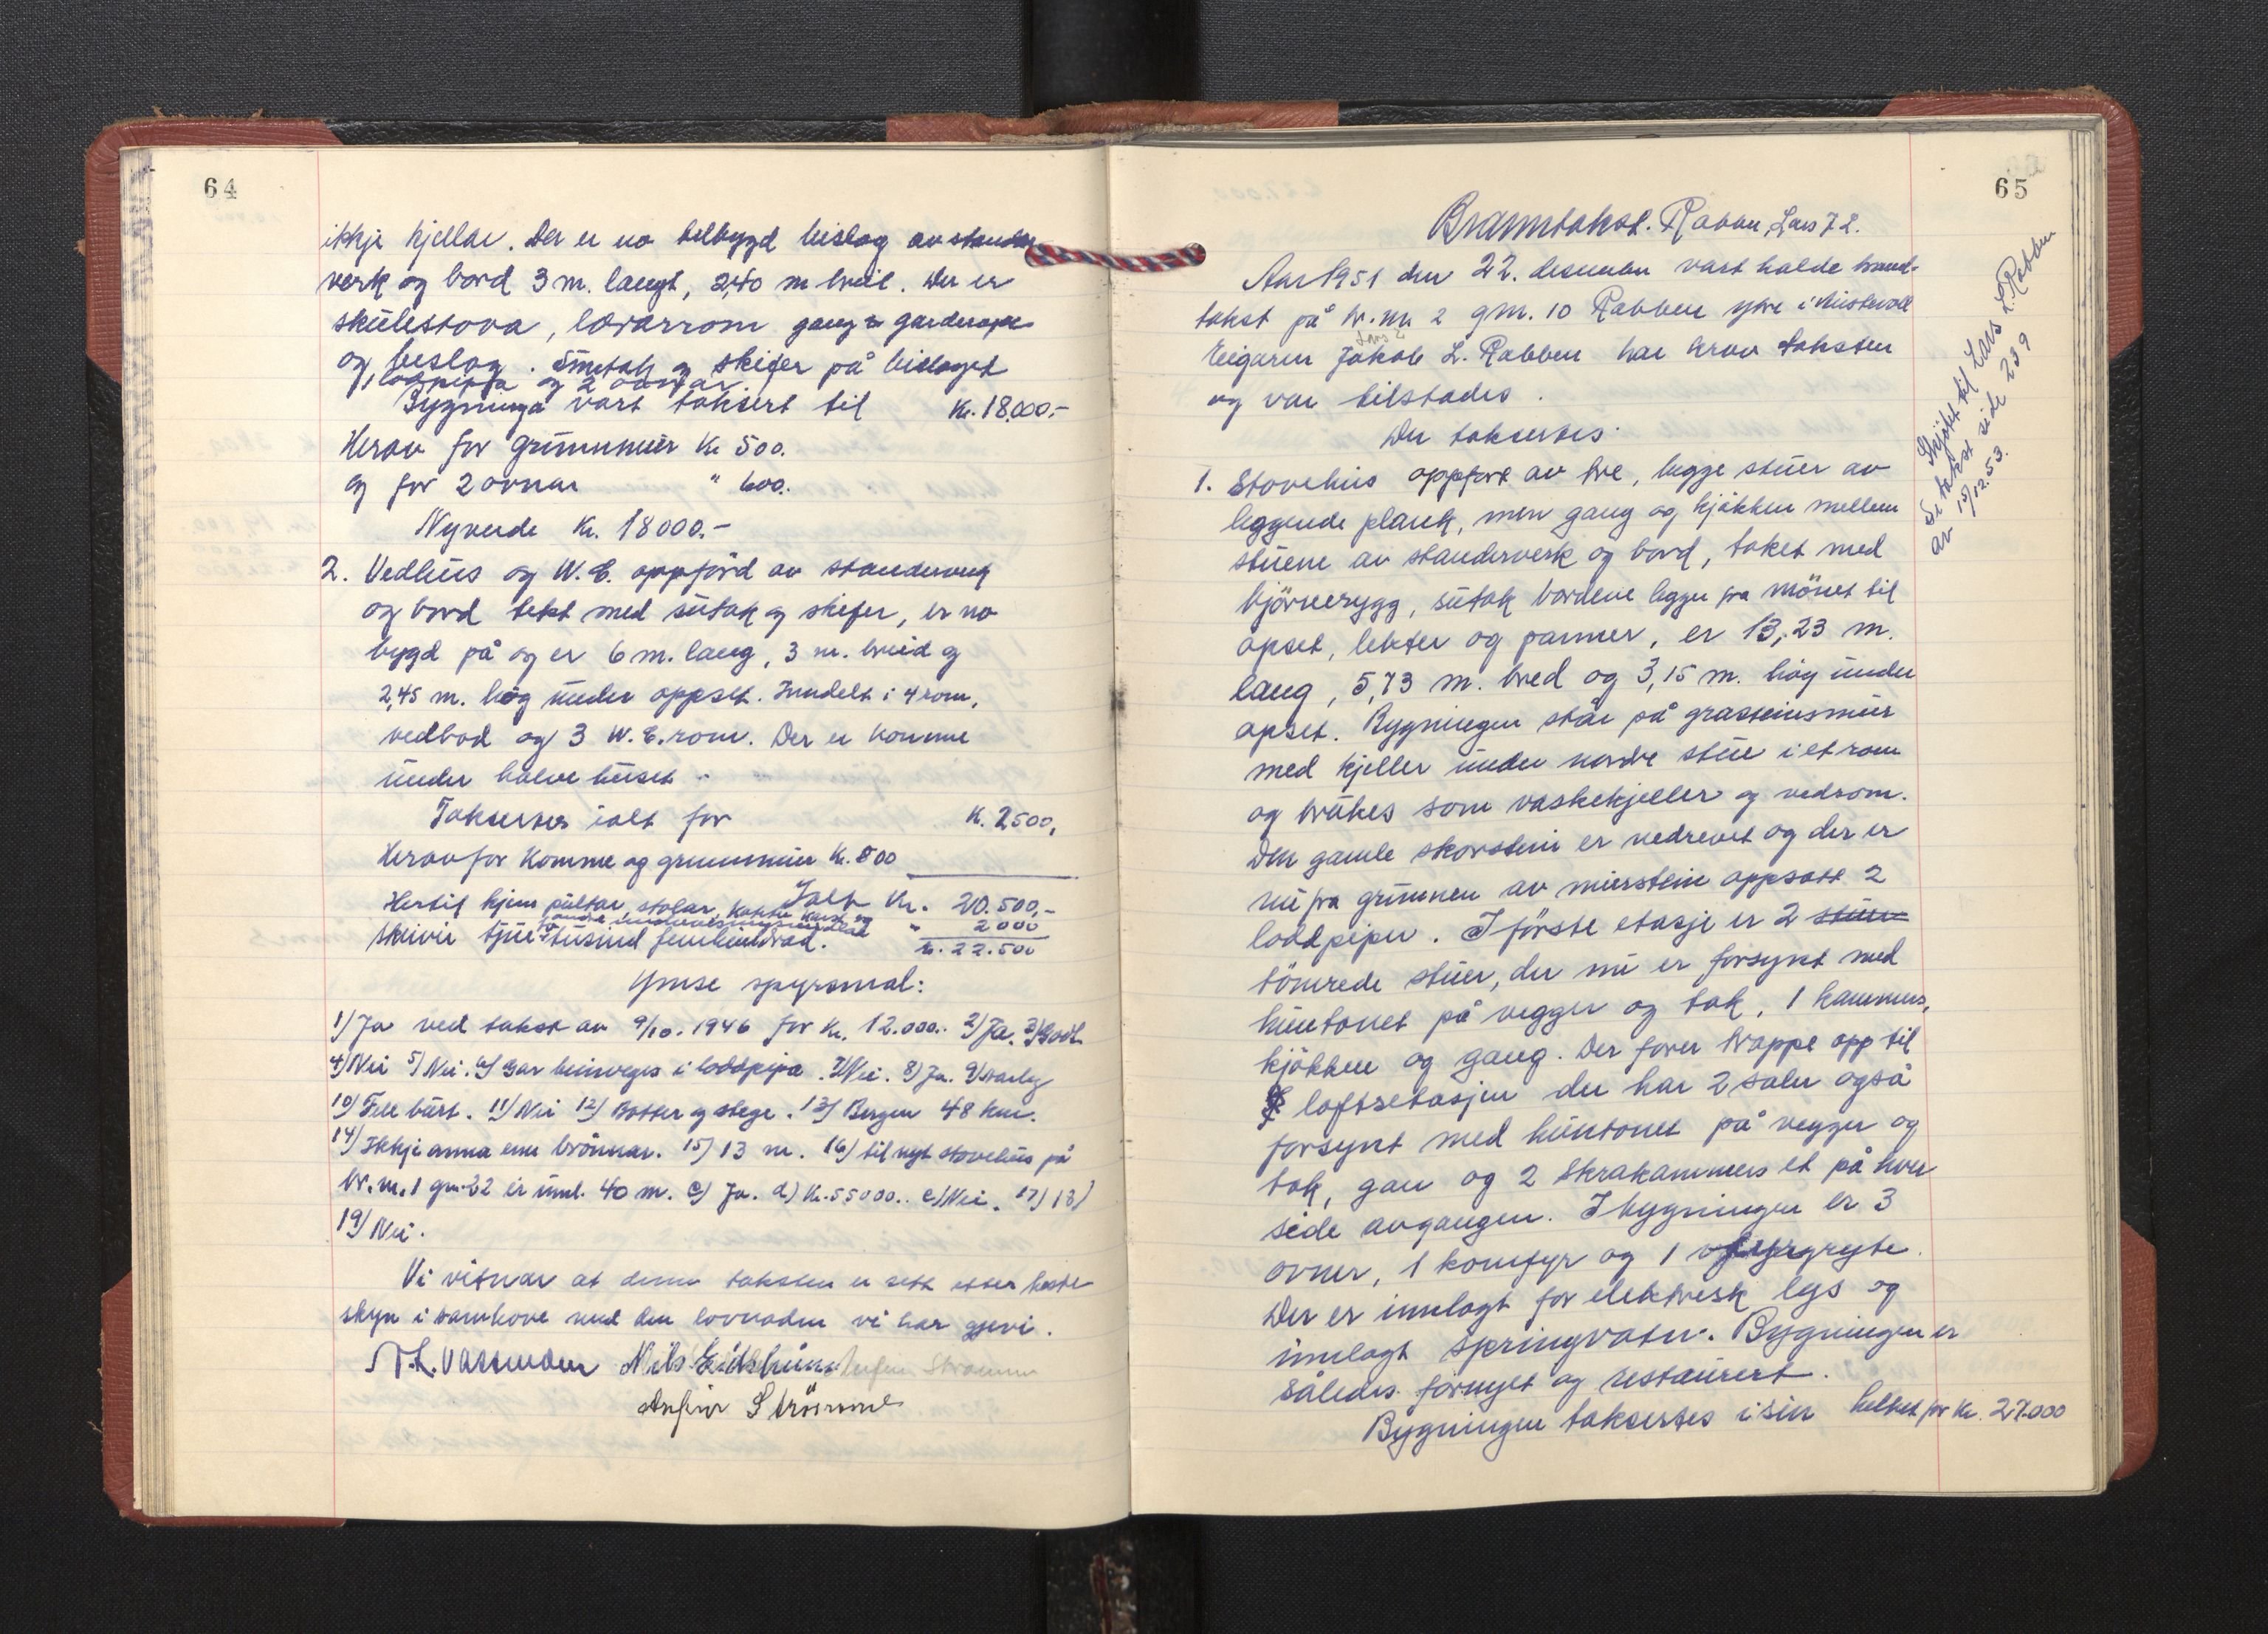 64
ikkje kjellar. Der er no tilbygd bislag av stander
verk og bord 3 m. langt, 2,40 m breit. Der er
skulestova, lærarrom gang og garderope
og beslag. Sutak og skifer på bislaget
1 lodpipa og 2 ovnar.
Bygninga vart taksert til Kr. 18.000.-
Herav for grunnmur Kr 500.
og for 2 ovnar " 600.
Nyverde Kr. 18000.-
2. Vedhus og W.C. oppförd av standerverk
og bord tekt med sutak og skifer, er no
bygd på og er 6 m. lang, 3 m. breid og
2,45 m. høg under oppset. Inndelt i 4 rom,
vedbod og 3 W.C. rom. Der er komme
under halve huset.
Takseres ialt for K. 2500,
Herav for komme og grunnmur Kr. 500
Ialt Kr. 20.500,-
Hertil kjem pultar, stolar, kakke kart og
andre undervisningsmidlar " 2000
skrivi tjueto tusind femhundrad. Kr. 22.500
Ymse spyrsmal:
1) Ja ved takst av 9/10. 1946 for Kr. 12.000.. 2) Ja. 3) Godt
4) Nei 5) Nei. 6) Gar beinveges i lodpipa. 7) Nei. 8) Ja. 9) varleg
10) Fell burt. 11) Nei 12) Botter og stege. 13) Bergen 48 km.
14) Ikkje anna enn brönnar. 15) 13 m. 16) til nyt stovehus på
br.nr. 1 gnr. 22 er uml. 40 m. c) Ja. d) Kr. 55000.. e) Nei. 17) 18)
19) Nei.
Vi vitnar at denne taksten er sett etter beste
skyn i samhøve med den lovnaden vi har gjevi.
Nils Eidshaug Anfin Strømme
Anfinn Strömme
65
Branntakst. Rabben, Lars J L.
Aar 1951 den 22. desember vart halde brand-
takst på br.nr. 2 gnr. 10 Rabben ytre i Austevoll
Lars
Eigaren Jakob L. Rabben har krav taksten
og var tilstades.
Der takseres:
1. Stovehus oppført av tre, begge stuer av
leggende plank, men gang og kjökken mellem
stuene av standerverk og bord, taket med
björnerygg, sutak bordene legger fra mönet til
opset, lekter og panner, er 13,23 m.
lang, 5,73 m. bred og 3,15 m. höy under
opset. Bygningen står på grasteinsmur
med kjeller under nordre stue i et rom
og brukes som vaskekjeller og vedrom.
Den gamle skorstein er nedrevet og der er
nu fra grunnen av murstein oppsatt 2
loddpiper. I förste etasje er 2 stuer
tömrede stuer, der nu er forsynt med
huntonet på vegger og tak, 1 kammers,
kjökken og gang. Der förer trappe opp til
loftsetasjen der har 2 saler også
forsynt med huntonet på vegger og
tak, gan og 2 skrakammers et på hver
side avgangen. I bygningen er 3
ovner, 1 komfyr og 1 gryte.
Der er innlagt for elektrisk lys og
innlagt springvatn. Bygningen er
således fornyet og restaurert.
Bygningen takseres i sin helhet for Kr. 27.000
Skjötet til Lars L. Rabben
Se takst side 239
av 15/12.53.